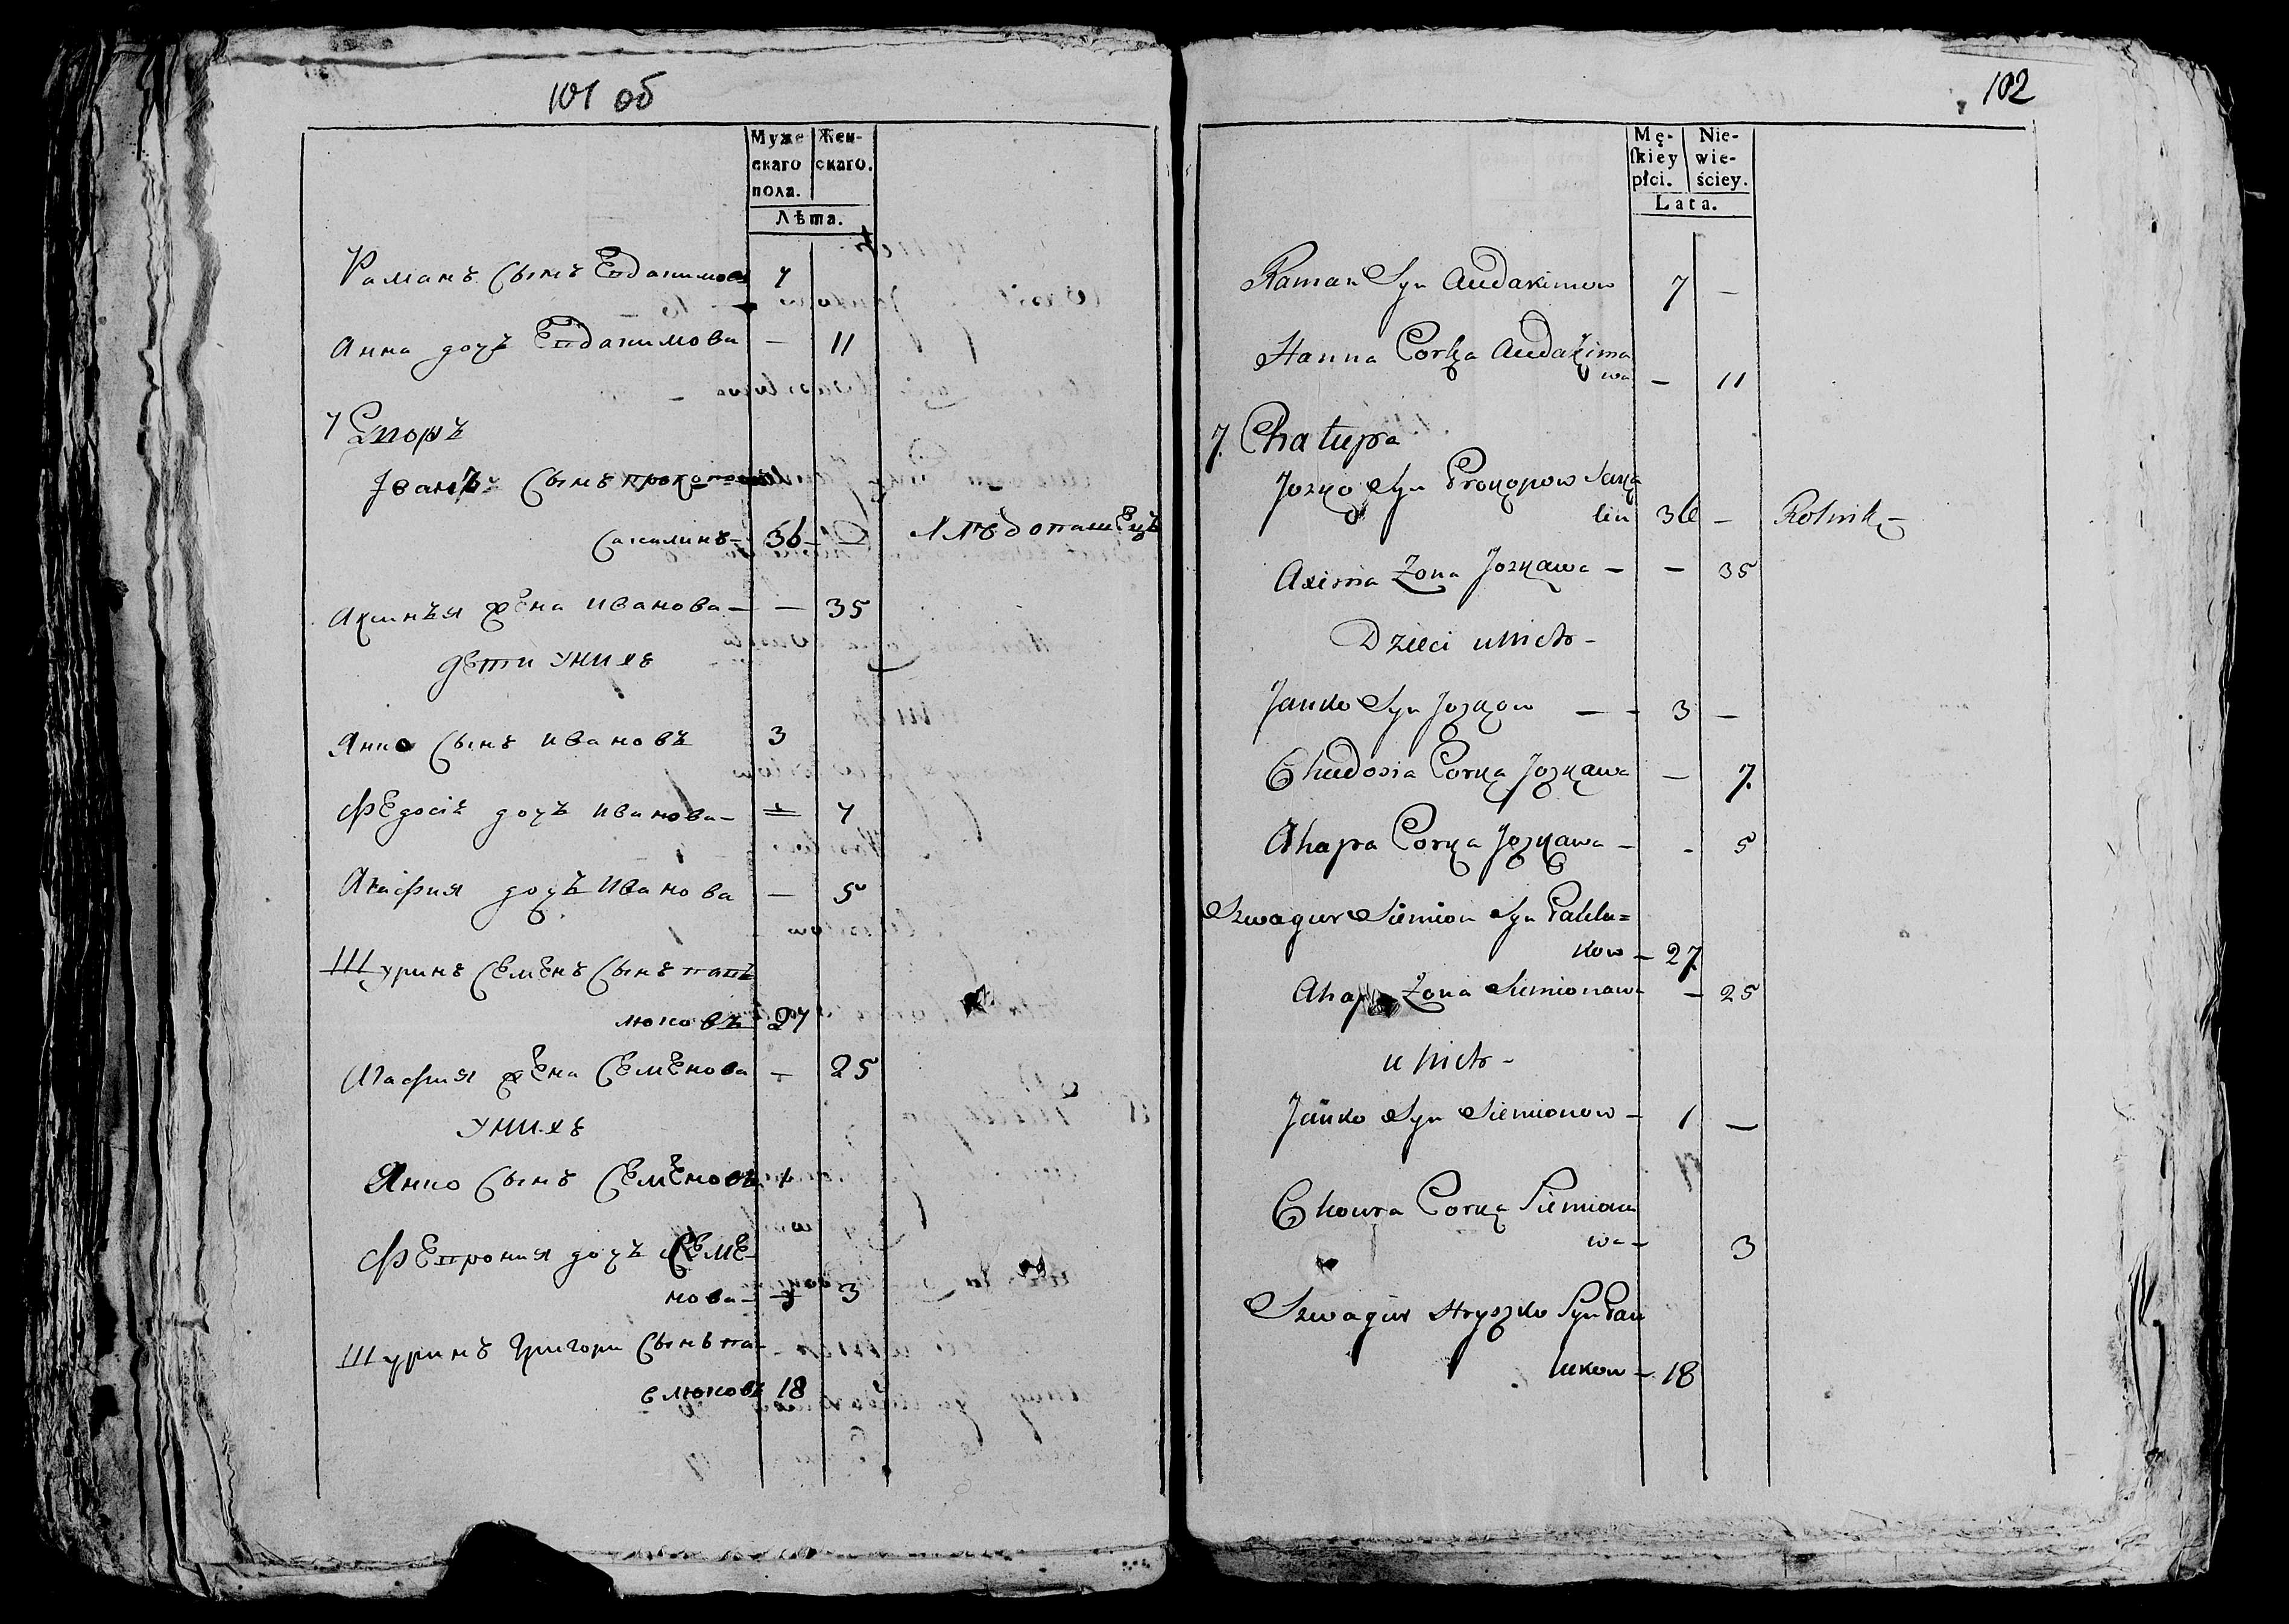 101 об
Муже скаго пола. Жен- скаго.
Лѣта.
Раманъ сынъ Евдакимовъ 7
Анна дочь Евдакимова — 11
7 Дворъ
Iванъ сынъ прокопов
Сакалинъ — 36 — Хлѣбопашецъ
Аксинья жена иванова — — 35
дети уних
Янко сынъ ивановъ 3
Федосiя дочь иванова — 7
Агафия дочь иванова — 5
Шуринъ семенъ сынъ пав
люковъ 27
Агафия жена семенова — 25
уних
Янко сынъ семеновъ 1
Фепрония дочь семе-
нова — 3
Шуринъ григори сынъ па-
влюковъ 18
102
Mę- skiey płci. Nie- wie- ściey.
Lata.
Raman Syn Audakimow 7 —
Hanna Corka Audakima
wa — 11
7. Chałupa
Jozko Syn Prokopow Saka
lin 36 — Rolnik —
Axinia Zona Jozkawa — — 35
Dzieci u nich —
Janko Syn Jozkow — — 3 —
Chwdosia Corka Jozkawa — 7.
Ahapa Corka Jozkawa — - 5
Szwagier Siemion Syn Pawlu=
kow — 27
Zona Siemionawa — 25
u nich —
Janko Syn Siemionow — 1 —
Chowra Corka Siemiona
wa — 3
Szwagier Hryszko Syn Paw
lukow — 18